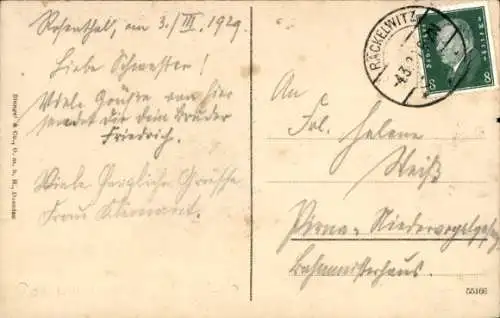 Rosenthal, am 3./III. 1929.
Liebe Schwester!
Viele Grüße von hier
sendet Dir Dein Bruder
Friedrich.
Viele herzliche Grüsse
Frau
Stengel & Co., G. m. b. H., Dresden
RÄCKELWITZ
4.3.
DEUTSCHES REICH
8 8
An
Frl. Helene
Weiß
Pirna-Niedervogelgesang
Bahnmeisterhaus.
55166